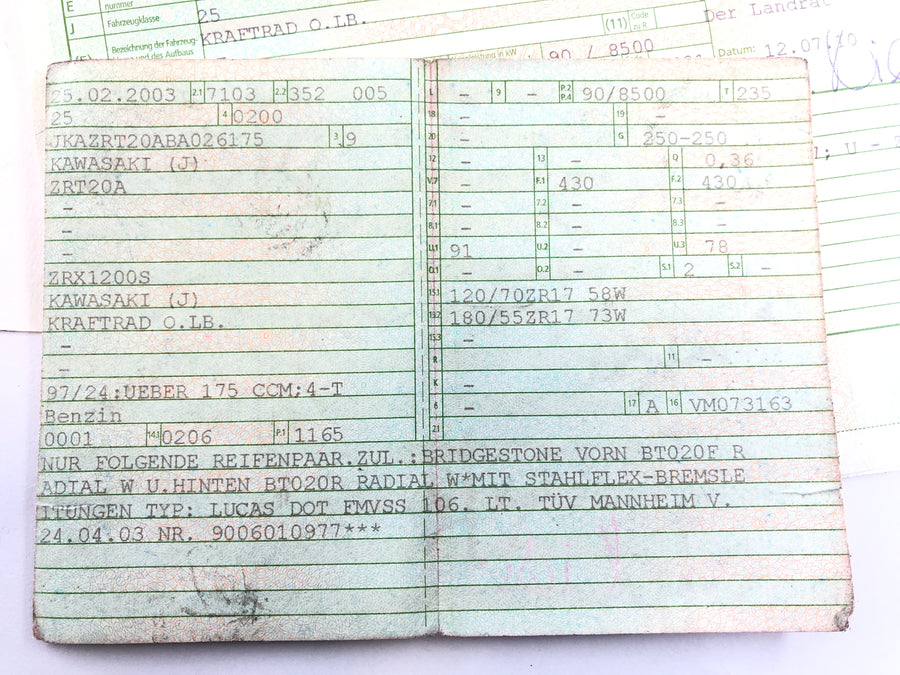 E nummer
J Fahrzeugklasse 25
KRAFTRAD O.LB. (11) Code zu R
Der Landrat
Bezeichnung der Fahrzeug-
und des Aufbaus
in kW 90 / 8500
Datum: 12.07
25.02.2003 2.1 7103 2.2 352 005
25 4 0200
JKAZRT20ABA026175 3 9
KAWASAKI (J)
ZRT20A
–
–
–
ZRX1200S
KAWASAKI (J)
KRAFTRAD O.LB.
–
–
97/24:UEBER 175 CCM;4-T
Benzin
0001 14.1 0206 P.1 1165
L – 9 – P.2 P.4 90/8500 T 235
18 – 19 –
20 – G 250-250
12 – 13 – Q 0,36
V.7 – F.1 430 F.2 430
7.1 – 7.2 – 7.3 –
8.1 – 8.2 – 8.3 –
U.1 91 U.2 – U.3 78
O.1 – O.2 – S.1 2 S.2 –
15.1 120/70ZR17 58W
15.2 180/55ZR17 73W
15.3 –
R – 11 –
K –
6 – 17 A 16 VM073163
21
NUR FOLGENDE REIFENPAAR.ZUL.:BRIDGESTONE VORN BT020F R
ADIAL W U.HINTEN BT020R RADIAL W*MIT STAHLFLEX-BREMSLE
ITUNGEN TYP: LUCAS DOT FMVSS 106. LT. TÜV MANNHEIM V.
24.04.03 NR. 9006010977***